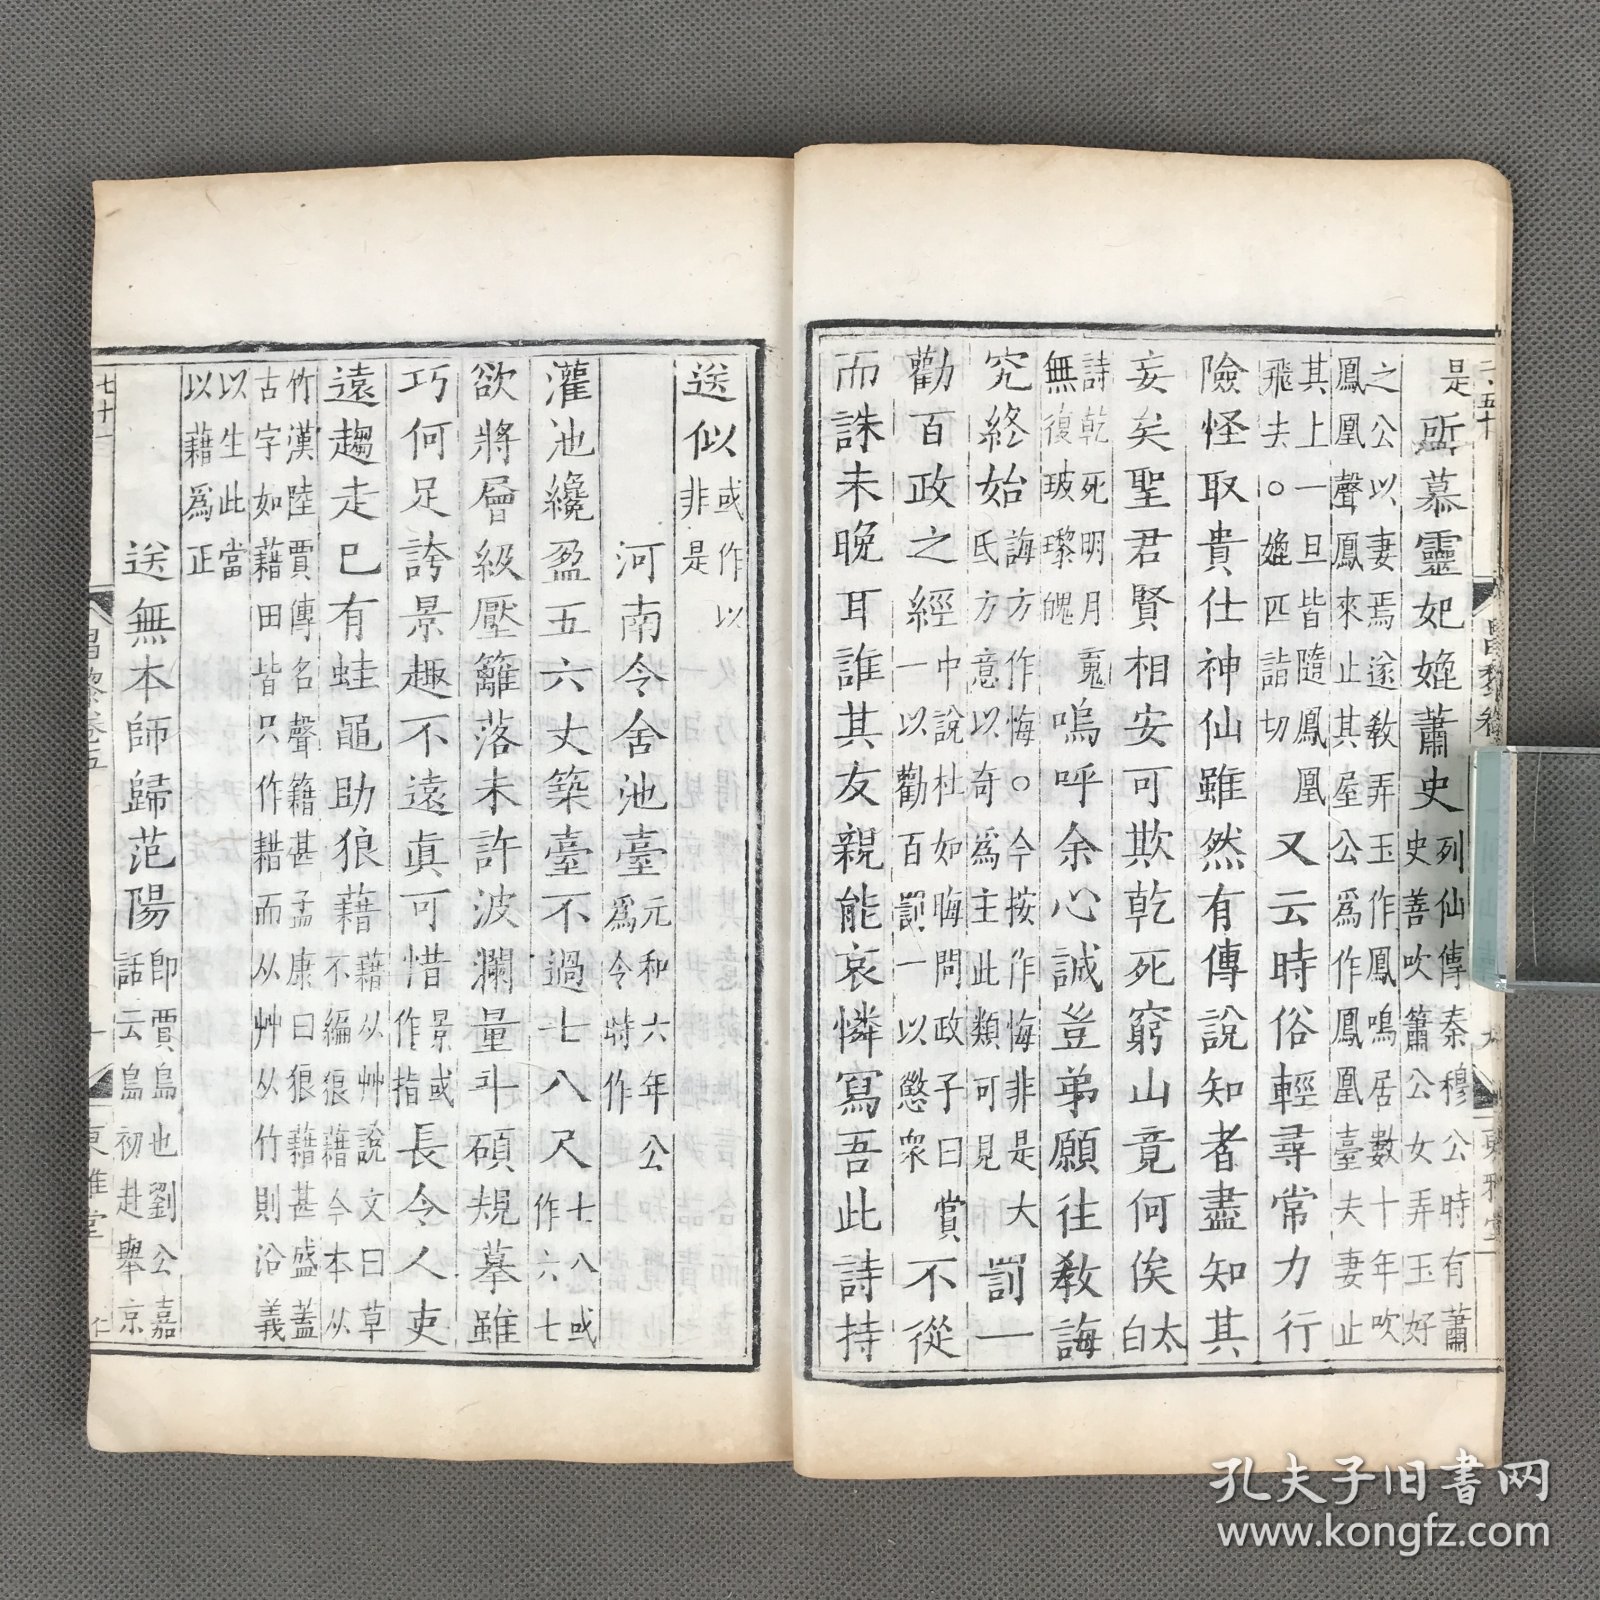 二五十
昌黎卷
九
東雅堂
是所慕靈妃媲蕭史列仙傳秦穆公時有蕭
史善吹簫公女弄玉好
之公以妻焉遂敎弄玉作鳳鳴居數十年吹
鳳凰聲鳳來止其屋公爲作鳳凰臺夫妻止
其上一旦皆隨鳳凰
飛去○媲匹詣切
又云時俗輕尋常力行
險怪取貴仕神仙雖然有傳說知者盡知其
妄矣聖君賢相安可欺乾死窮山竟何俟太
白
詩乾死明月䰟
無復玻瓈魄
嗚呼余心誠豈弟願往敎誨
究終始誨方作悔○今按作悔非是大
氐方意以奇爲主此類可見
罰一
勸百政之經中說杜如晦問政子曰賞
一以勸百罰一以懲衆
不從
而誅未晚耳誰其友親能哀憐寫吾此詩持
送似或作以
非是
河南令舍池臺元和六年公
爲令時作
灌池纔盈五六丈築臺不過七八尺七八或
作六七
欲將層級壓籬落未許波瀾量斗碩規摹雖
巧何足誇景趣不遠眞可惜景或
作指
長令人吏
遠趨走已有蛙黽助狼藉藉从艸說文曰草
不編狼藉今本从
竹漢陸賈傳名聲籍甚孟康曰狼藉甚盛蓋
古字如藉田皆只作耤而从艸从竹則沿義
以生此當
以藉爲正
送無本師歸范陽即賈島也劉公嘉
話云島初赴舉京
七十一
昌黎卷五
十
東雅堂
仁
孔夫子旧书网
www.kongfz.com